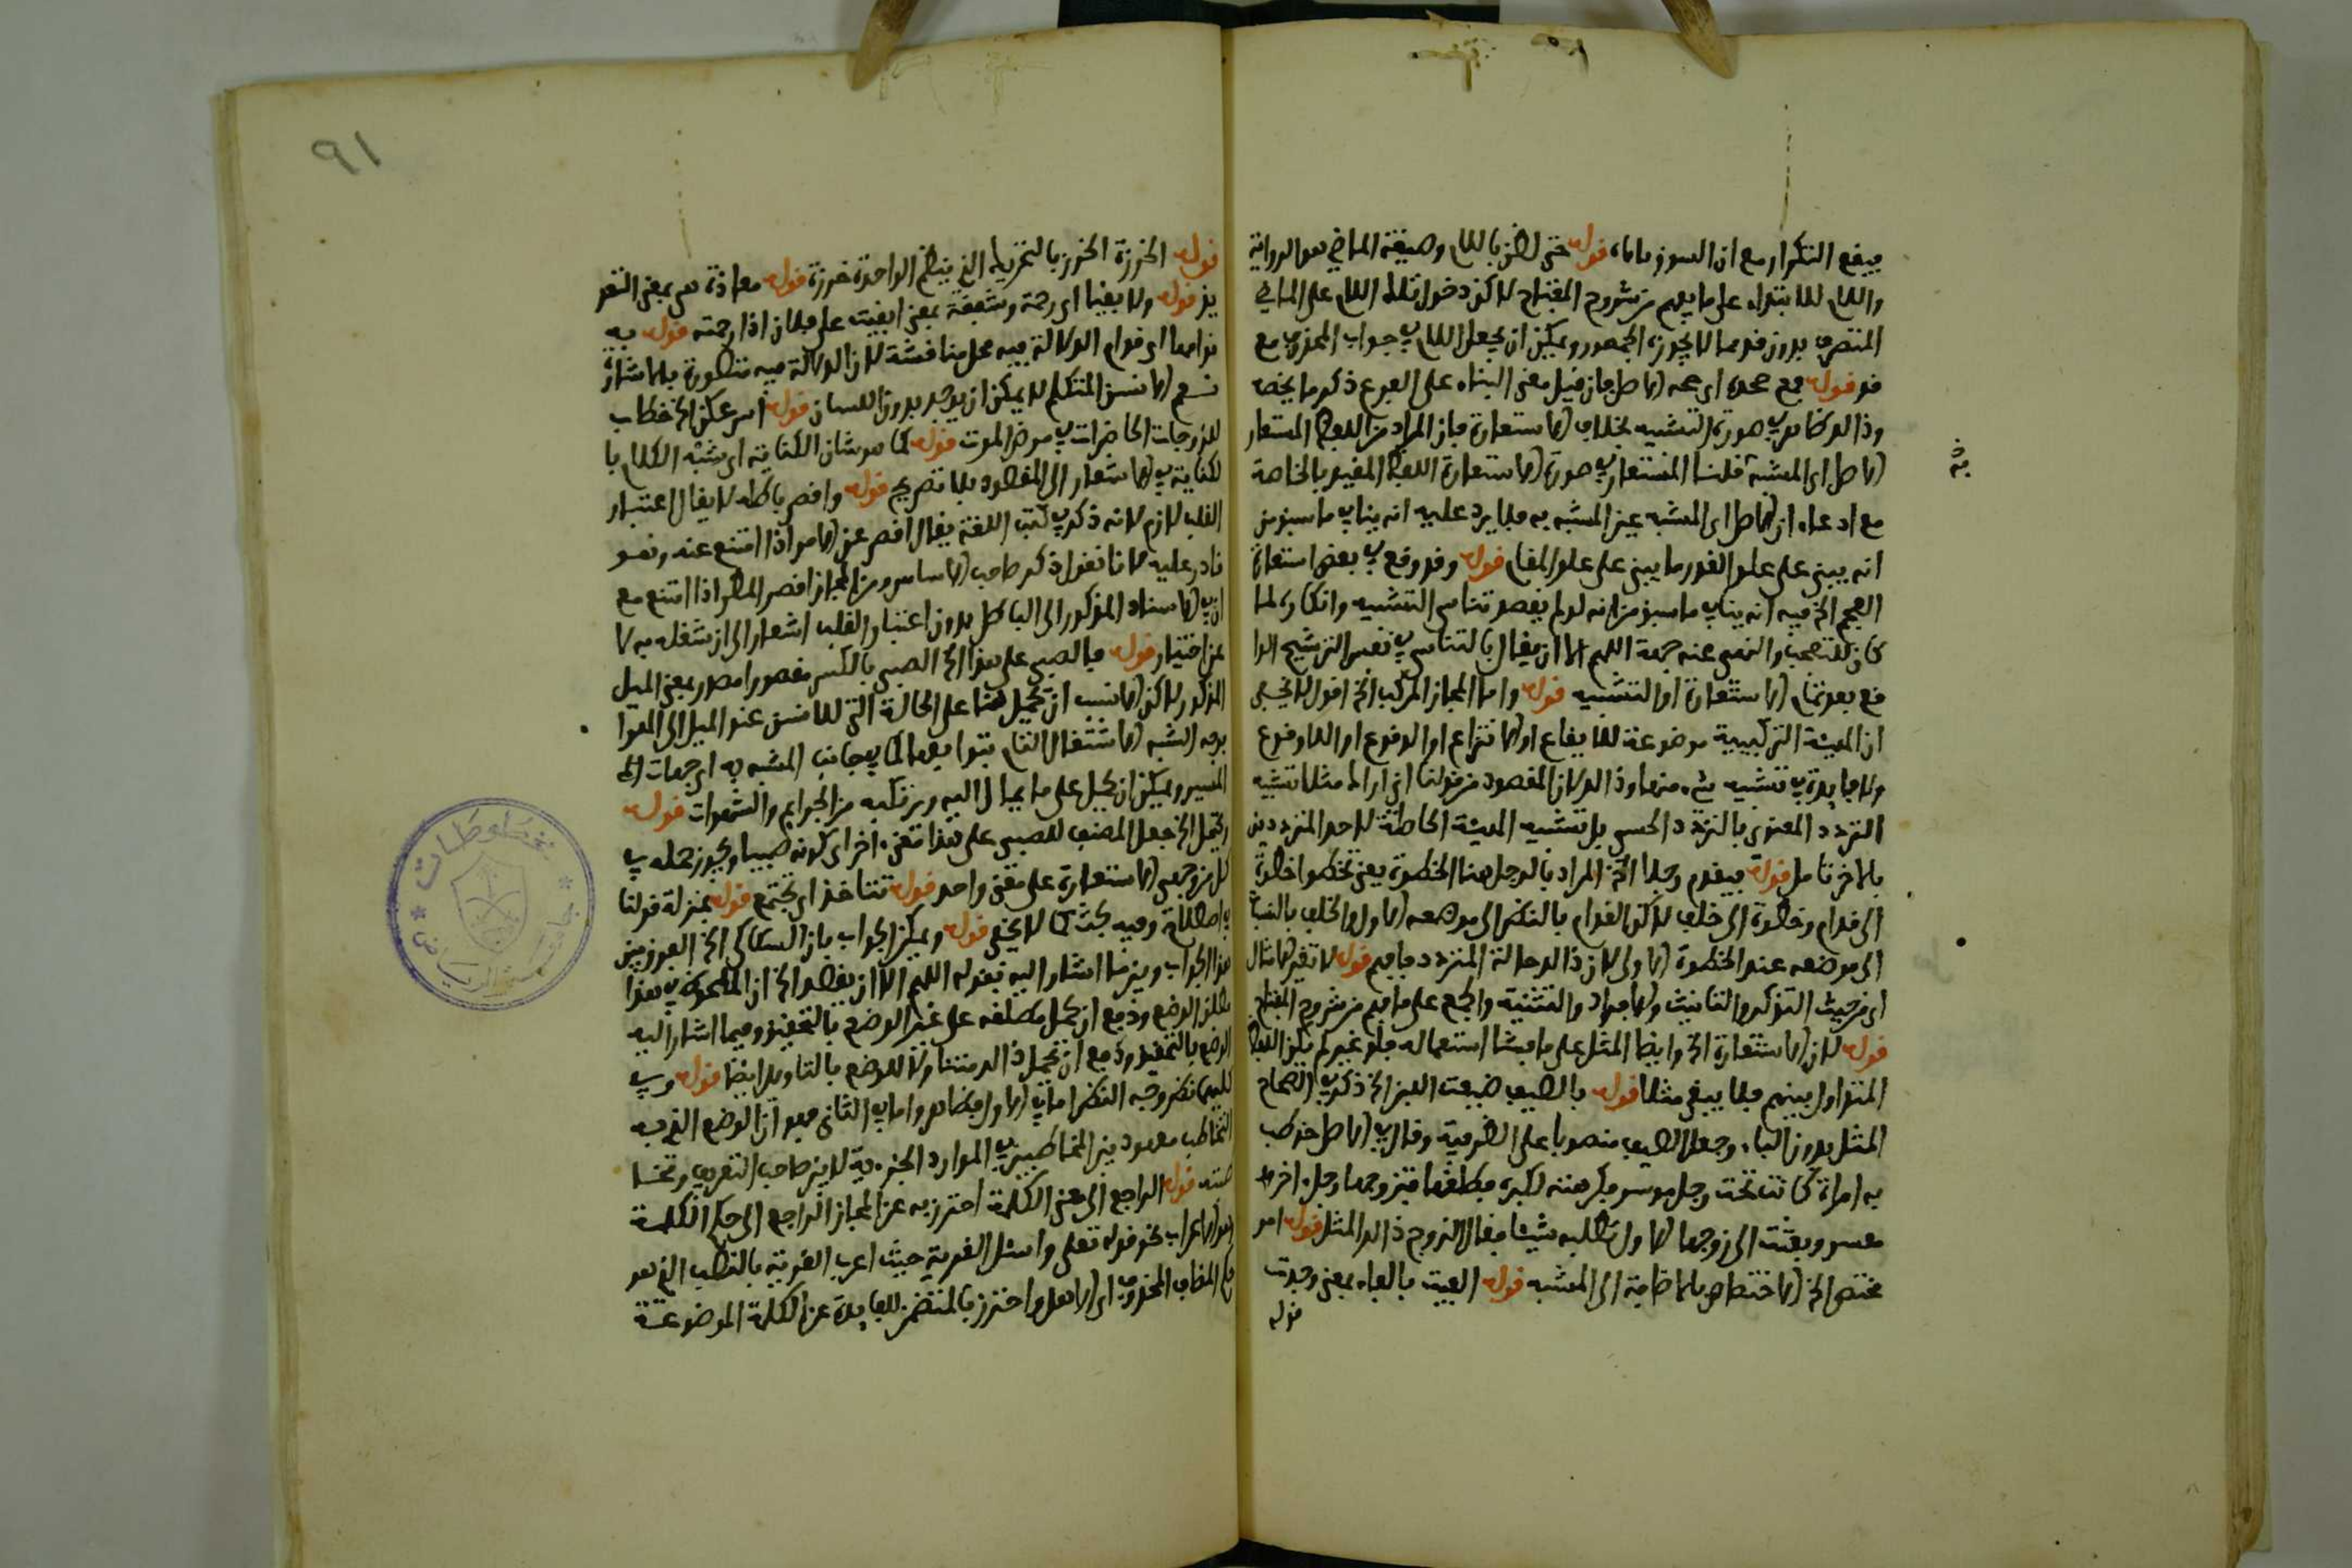 فيقع التكرار مع ان السوق ياباه قوله حتى لظن باللام وصيغة الماضي هو الرواية
واللام للابتداء على ما يفهم من شروح المفتاح لاكن دخول تلك اللام على الماضي
المتصرف بدون قد مما لا يجوزه الجمهور ويمكن ان يجعل اللام في جواب المحذوف مع
قد قوله مع جحده اي جحد الاصل فان قيل معنى البناء على الفرع ذكر ما يخصه
وذا لا يظهر في صورة التشبيه بخلاف الاستعارة فان المراد من اللفظ المستعار
الاصل اي المشبه قلنا المستعار في صورة الاستعارة اللفظ المقيد بالخاصة
مع ادعاء ان الاصل اي المشبه عين المشبه به فلا يرد عليه انه ينافي ما سبق من
انه يبنى على علو القدر ما يبنى على علو المقام قوله وقد وقع في بعض اشعار
العجم الخ فيه انه ينافي ما سبق من انه لو لم يقصد تناسي التشبيه وانكاره لما
كان للتعجب والنهي عنه جهة اللهم الا ان يقال بالتناسي في نفس الترشيح الوا
قع بعد تمام الاستعارة او التشبيه قوله واما المجاز المركب الخ اقول لا يخفى
ان الهيئة التركيبية موضوعة للايقاع او الانتزاع او الوقوع او اللاوقوع
ولا فايدة في تشبيه شيء منها وذا لان المقصود من قولنا اني اراك مثلا تشبيه
التردد المعنوي بالتردد الحسي بل تشبيه الهيئة الحاصلة لاحد المترددين
بالاخر تامل قوله فيقدم رجلا الخ المراد بالرجل هنا الخطوة يعني تخطو خطوة
الى قدام وخطوة الى خلف لاكن القدام بالنظر الى موضعه الاول والخلف بالنسبة
الى موضعه عند الخطوة الاولى لان ذا لحالة المتردد فافهم قوله لا تغير الامثال
اي من حيث التذكير والتانيث والافراد والتثنية والجمع على ما فهم من شروح المفتاح
قوله لان الاستعارة الخ وايضا المثل على ما فشا استعماله فلو غير لم يكن اللفظ
المتداول بينهم فلا يبقى مثلا قوله بالصيف ضيعت اللبن الخ ذكر في الصحاح
المثل بدون الباء وجعل الصيف منصوبا على الظرفية وقال في الاصل خوطب
به امراة كانت تحت رجل موسر فكرهته لكبره فطلقها فتزوجها رجل اخر
معسر وبعثت الى زوجها الاول تطلب شيئا فقال الزوج ذا لك المثل قوله امر
مختص الخ الاختصاص بالاضافة الى المشبه قوله الفيت بالفاء بمعنى وجدت
قوله
٩١
قوله الخرزة الخرز بالتحريك الذي ينظم الواحدة خرزة قوله معاذة هي بمعنى التعو
يذ قوله ولا بقيا اي رحمة وشفقة بمعنى ابقيت على فلان اذا رحمته قوله به
قوامها اي قوام الدلالة فيه محل مناقشة لان الدلالة فيه متطورة بالاشارة
نعم الانسان المتكلم لا يمكن ان يوجد بدون اللسان قوله اسرعكن الخ خطاب
للزوجات الحاضرات في مرض الموت قوله كما هو شان الكناية اي شبه الكلام با
لكناية في الاشعار الى المقصود بلا تصريح قوله واقصر باطله لا يقال اعتبار
القلب لازم لانه ذكر في كتب اللغة يقال اقصر عن الامر اذا امتنع عنه وهو
قادر عليه لانا نقول ذكر صاحب الاساس ومن المجاز اقصر المطر اذا امتنع مع
ان في الاسناد المذكور الى الباطل بدون اعتبار القلب اشعار الى ان شغله به لا
عن اختيار قوله فالصبي على هذا الخ الصبى بالكسر مقصورا مصدر بمعنى الميل
المذكور لاكن الانسب ان يحمل هنا على الحالة التي للانسان عند الميل الى الهوا
بوجه الشبه الاشتغال التام بتوابعه الكاينة في جانب المشبه به اي جهات الخ
المسير ويمكن ان يحمل على ما يمال اليه ويرتكبه من الجرايم والشهوات قوله
ويحتمل الخ جعل المصنف للصبى على هذا معنى اخر اي كونه صبيا ويجوز حمله في
كل من وجهي الاستعارة على معنى واحد قوله تتاخذ اي تجتمع قوله بمنزلة قولنا
في اصطلاح وفيه بحث كما لا يخفى قوله ويمكن الجواب بان السكاكي الخ الفرق بين
هذا الجواب وبين ما اشار اليه بقوله اللهم الا ان يقصد الخ ان الملحوظ في هذا
مطلق الوضع ودفع ان يحمل مطلقه على غير الوضع بالتحقيق وفيما اشار اليه
الوضع بالتحقيق ودفع ان يحمل ذا لك متناولا للوضع بالتاويل ايضا قوله وفي
كليهما نظر وجه النظر اما في الاول فظاهر واما في الثاني فهو ان الوضع الذي فيه
التخاطب معهود بين المتخاطبين في الموارد الجزءية لا بين صاحب التعريف وتخا
طبه قوله الراجع الى معنى الكلمة احترز به عن المجاز الراجع الى حكم الكلمة
وهو الاعراب نحو قوله تعلى واسئل القرية حيث اعرب القرية بالنصب الذي هو
حكم المضاف المحذوف اي الاهل واحترز بالمتضمن للفايدة عن الكلمة الموضوعة